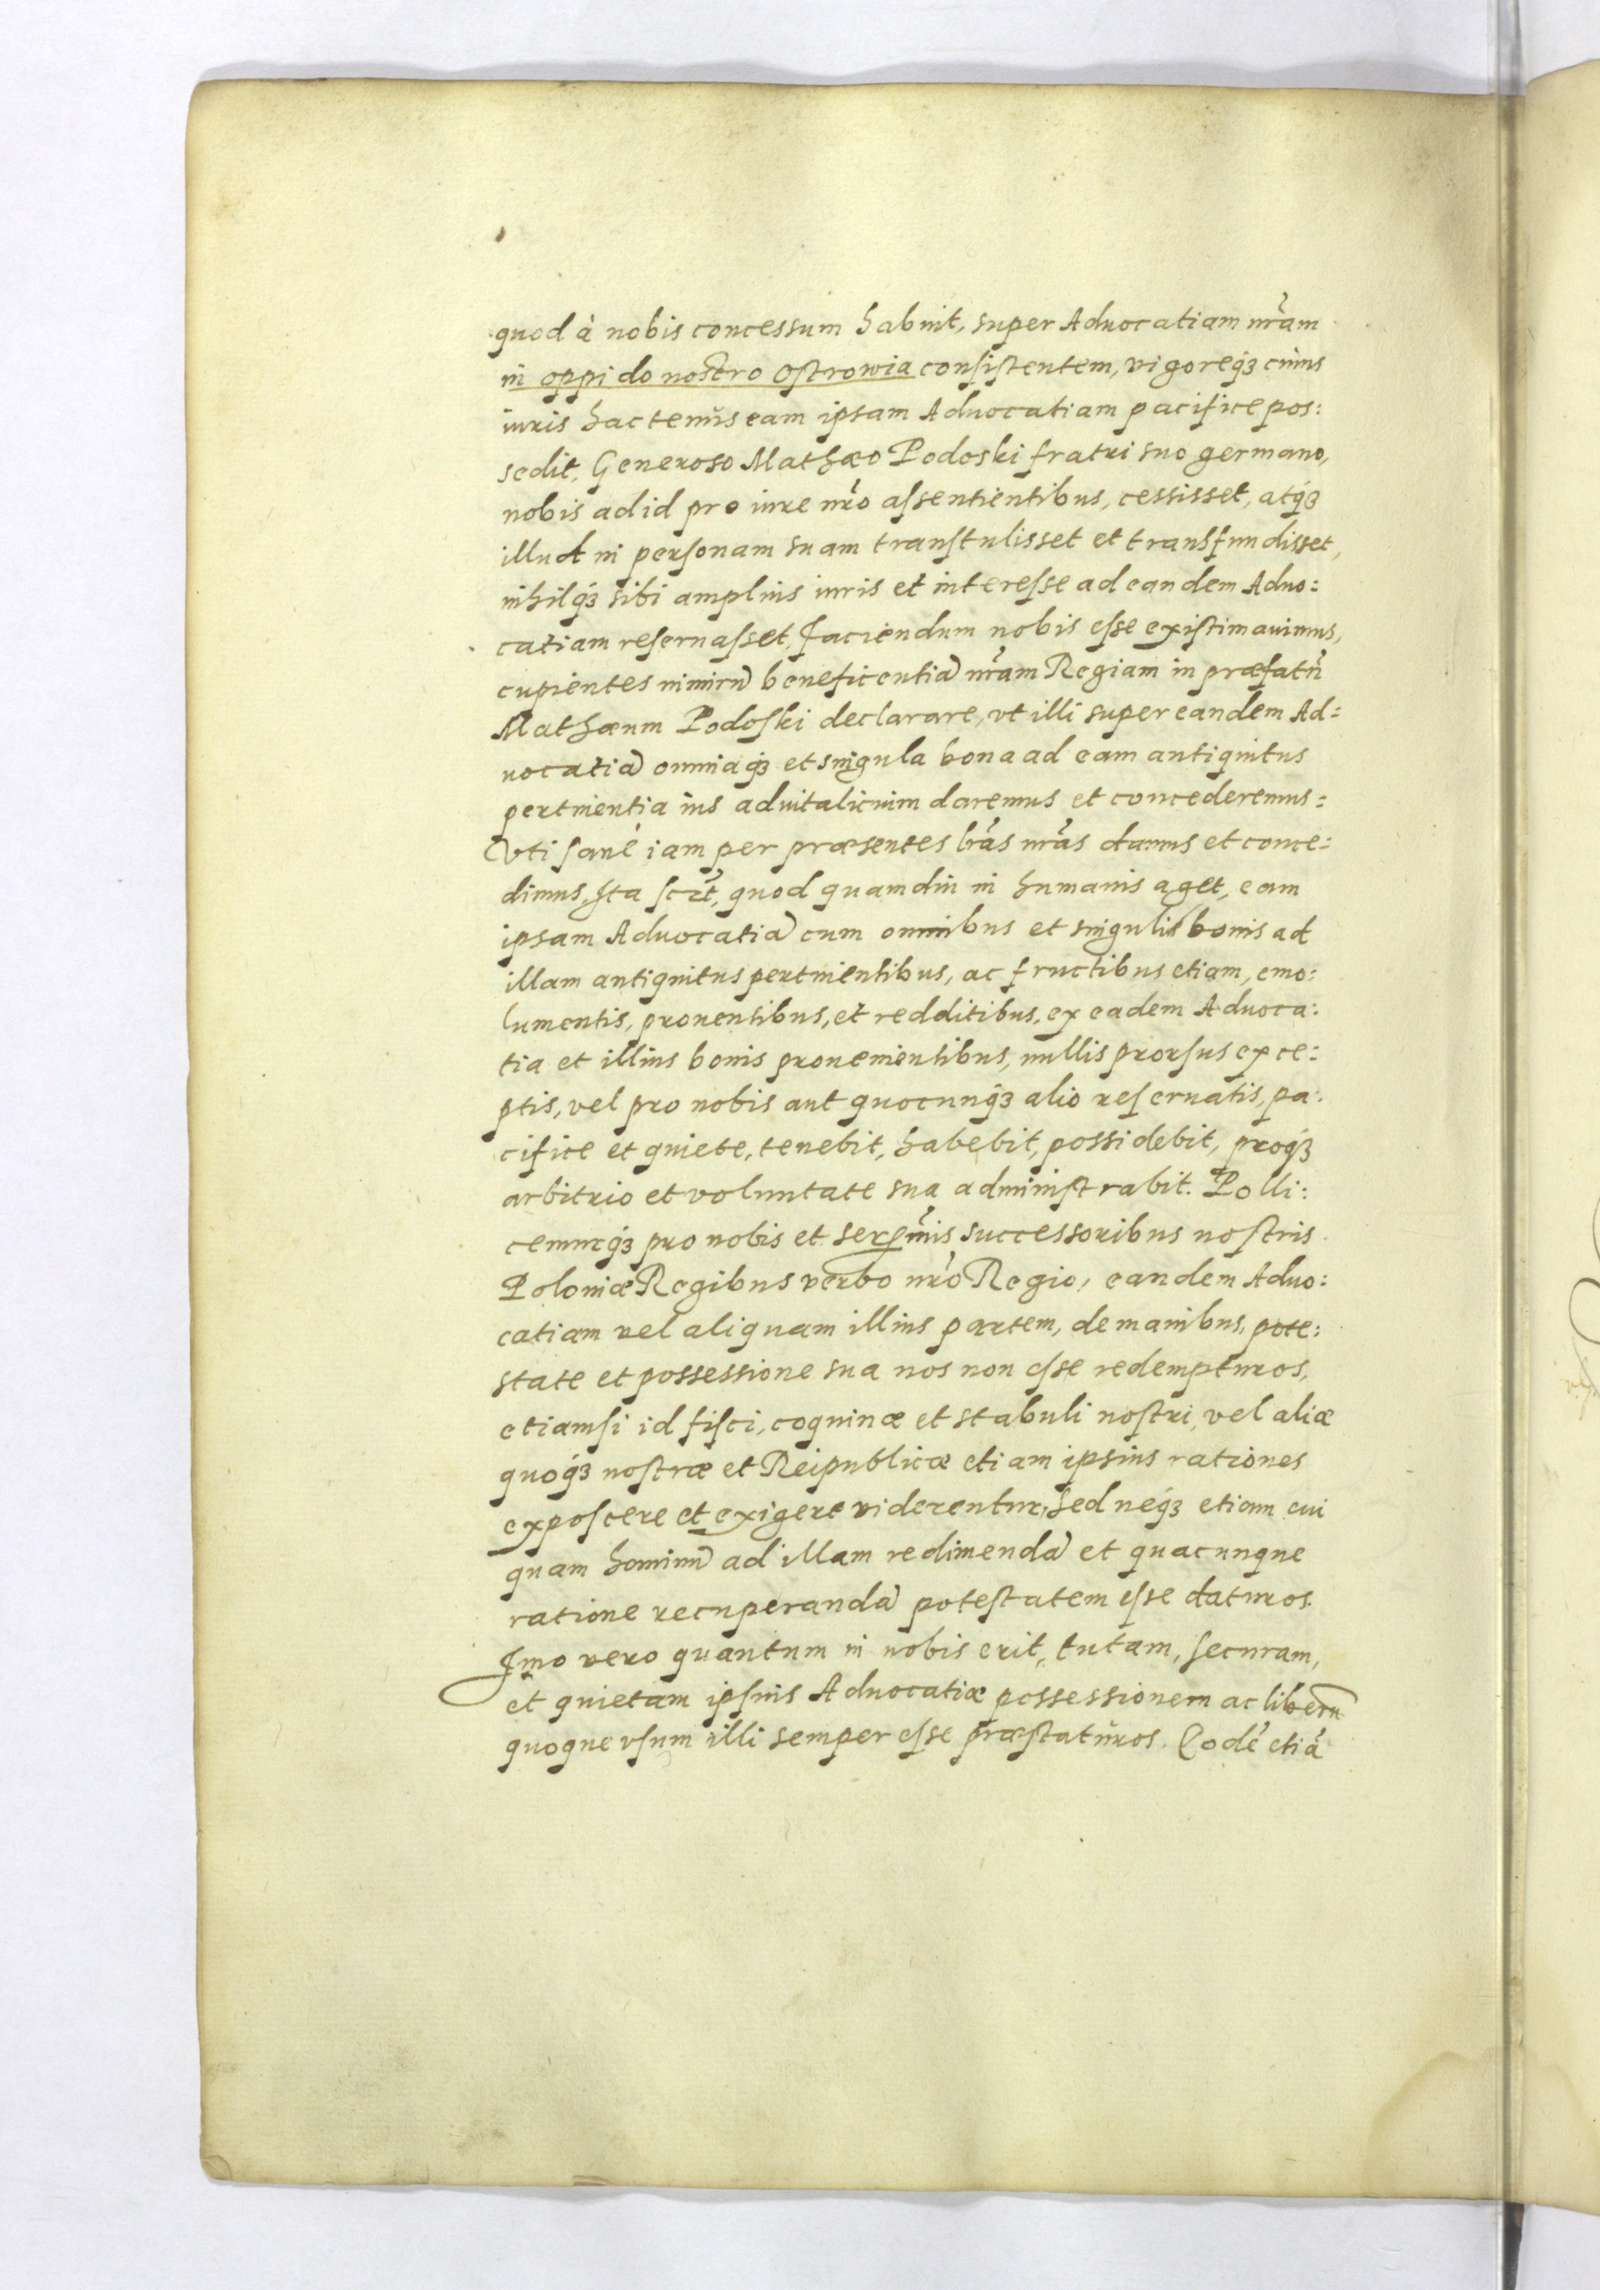 quod à nobis concessum habuit, super Aduocatiam nr̃am
in oppido nostro Ostrowia consistentem, vigoreq́ȝ cuius
iuris hactenus eam ipsam Aduocatiam pacifice pos:
sedit, Generoso Mathæo Podoski fratri suo germano,
nobis ad id pro iure nr̃o assentientibus, cessisset, atq́ȝ
illud in personam suam transtulisset et transfundisset,
nihilq́ȝ sibi amplius iuris et interesse ad eandem Aduo:
catiam reseruasset, faciendum nobis esse existimauimus,
cupientes nimirũ beneficentiã nr̃am Regiam in præfatũ
Mathæum Podoski declarare, vt illi super eandem Ad:
uocatiã omniaq́ȝ et singula bona ad eam antiquitus
pertinentia ius aduitalicium daremus et concederemus:
Vti sanè iam per præsentes lr̃as nr̃as damus et conce:
dimus, Ita scĩt, quod quamdiu in humanis aget, eam
ipsam Aduocatiã cum omnibus et singulis bonis ad
illam antiquitus pertinentibus, ac fructibus etiam, emo:
lumentis, prouentibus, et redditibus, ex eadem Aduoca:
tia et illius bonis prouenientibus, nullis prorsus exce:
ptis, vel pro nobis aut quocunq́ȝ alio reseruatis, pa:
cifice et quiete, tenebit, habebit, possidebit, proq́ȝ
arbitrio et voluntate sua administrabit. Polli:
cemurq́ȝ pro nobis et serẽmis successoribus nostris
Poloniæ Regibus verbo nr̃o Regio, eandem Aduo:
catiam vel aliquam illius partem, de manibus, pote:
state et possessione sua nos non esse redempturos,
etiamsi id fisci, coquinæ et stabuli nostri, vel aliæ
quoq́ȝ nostræ et Reipublicæ etiam ipsius rationes
exposcere et exigere viderentur, Sed neq́ȝ etiam cui
quam hominũ ad illam redimendã et quacunque
ratione recuperandã potestatem esse daturos.
Imo vero quantum in nobis erit, tutam, securam,
et quietam ipsius Aduocatiæ possessionem ac liberũ
quoque vsum illi semper esse præstaturos. Eodẽ etiã